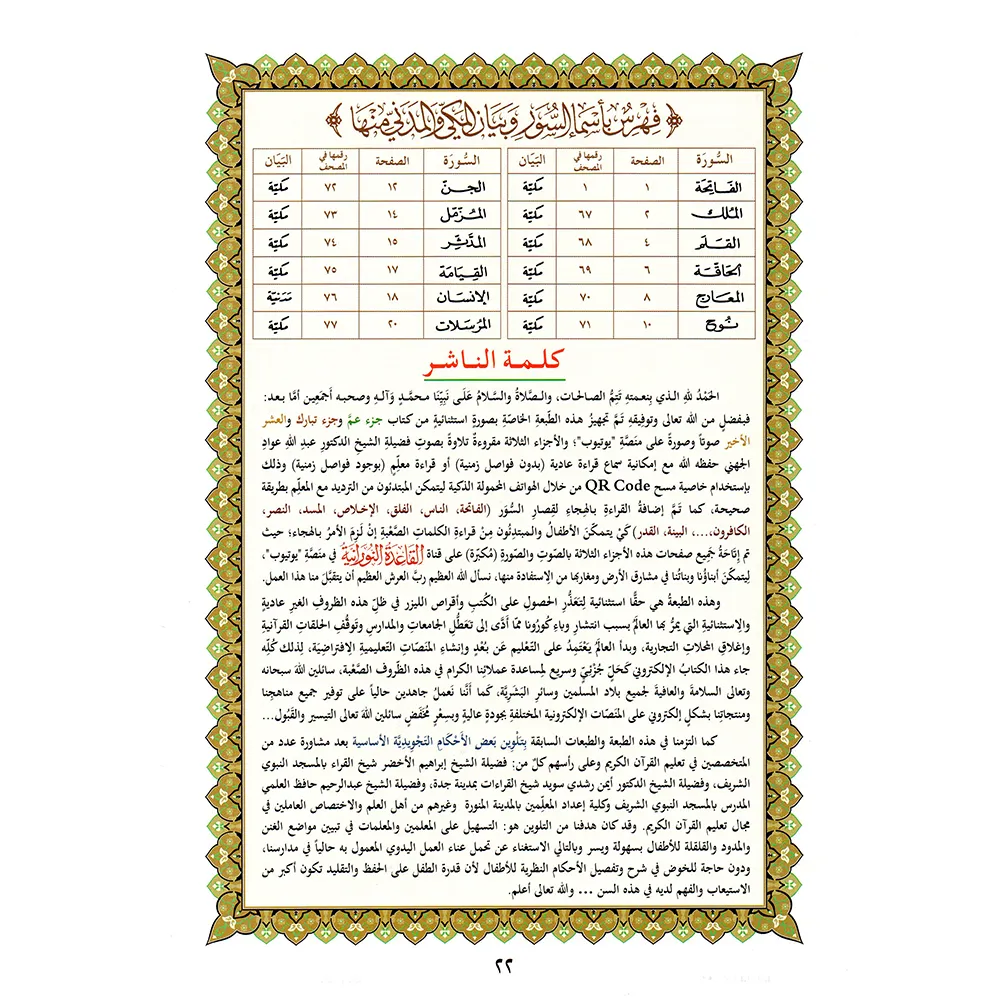 ﴿ فِهْرِسٌ بِأَسْمَاءِ السُّوَرِ وَبَيَانِ المَكِّيِّ وَالمَدَنِيِّ مِنْهَا ﴾
السُّورَة الصفحة رقمها في المصحف البَيَان السُّورَة الصفحة رقمها في المصحف البَيَان
الفَاتِحَة ١ ١ مكيّة الجِنّ ١٢ ٧٢ مكيّة
المُلك ٢ ٦٧ مكيّة المُزّمّل ١٤ ٧٣ مكيّة
القَلَم ٤ ٦٨ مكيّة المدَّثِّر ١٥ ٧٤ مكيّة
الحَاقَّة ٦ ٦٩ مكيّة القِيَامَة ١٧ ٧٥ مكيّة
المعَارِج ٨ ٧٠ مكيّة الإنسَان ١٨ ٧٦ مَدَنيّة
نُوح ١٠ ٧١ مكيّة المُرسَلات ٢٠ ٧٧ مكيّة
كلـمـة النـاشـر
الحَمْدُ للهِ الـذي بِنعمتهِ تَتِمُّ الصالحات، والـصَّلاةُ والسَّلامُ عَلَـى نَبِيِّنَا محـمَّـدٍ وَآلـهِ وصحبه أجمَعِين أمَّا بـعد:
فبفضلٍ من الله تعالى وتوفيقِهِ تَمَّ تجهيزُ هذه الطَّبعةِ الخاصّةِ بصورةٍ استثنائيةٍ من كتاب جزء عمَّ وجزء تبارك والعشر
الأخير صوتاً وصورةً على مَنصَّةِ "يوتيوب"؛ والأجزاء الثلاثة مقروءةً تلاوةً بصوتِ فضيلةِ الشيخِ الدكتورِ عبدِ اللهِ عوادٍ
الجهني حفظه الله مع إمكانية سماع قراءة عادية (بدون فواصل زمنية) أو قراءة معلِّم (بوجود فواصل زمنية) وذلك
بإستخدام خاصية مسح QR Code من خلال الهواتف المحمولة الذكية ليتمكن المبتدئون من الترديد مع المعلِّم بطريقة
صحيحة، كما تَمَّ إضافةُ القراءةِ بالهِجاءِ لقِصارِ السُّوَرِ (الفاتحة، الناس، الفلق، الإخلاص، المسد، النصر،
الكافرون،...، البينة، القدر) كَيْ يتمكنَ الأطفالُ والمبتدِئُون مِنْ قراءةِ الكلماتِ الصَّعْبةِ إنْ لَزِمَ الأمرُ بالهجاءِ؛ حيث
تم إتَاحةُ جَميعِ صفحات هذه الأجزاء الثلاثة بالصَّوتِ والصّورةِ (مُكبّرة) على قناةِ القَاعدَة النُّورَانيَّة في منصَّة "يوتيوب"،
لِيتمكّنَ أبناؤُنا وبناتُنا في مشارق الأرض ومغاربها من الإستفادة منها، نسأل الله العظيم ربَّ العرش العظيم أن يتقبَّلَ منا هذا العمل.
وهذه الطبعةُ هي حقًّا استثنائية لِتَعَذُّرِ الحصولِ على الكُتبِ وأقراصِ الليزر في ظلّ هذه الظروفِ الغيرِ عاديةٍ
والإستثنائيةِ التي يمرُّ بها العالَمُ بسبب انتشارِ وباءِ كُورُونا ممّا أدَّى إلى تَعَطُّلِ الجامعاتِ والمدارسِ وتَوقُّفِ الحلقاتِ القرآنيةِ
وإغلاقِ المحلاتِ التجاريةِ، وبدأَ العالَمُ يَعْتَمِدُ على التَّعْليمِ عَن بُعْدٍ وإنشاءِ المَنصّاتِ التعليميةِ الإفتراضيّة، لِذلك كُلِّه
جاء هذا الكتابُ الإلكتروني كَحَلٍّ جُزْئِيٍّ وسريعٍ لمِساعدة عملائِنا الكرام في هذه الظّروف الصَّعْبة، سائلين اللهَ سبحانه
وتعالى السلامةَ والعافيةَ لجميعِ بلادِ المسلمين وسائرِ البَشَرِيَّة، كما أنَّنا نَعملُ جاهدين حالياً على توفير جميع مناهجِنا
ومنتجاتِنا بشكلٍ إلكتروني على المَنصّات الإلكترونية المختلفةِ بجودةٍ عاليةٍ وبسِعْرٍ مُخفَّضٍ سائلين اللهَ تعالى التيسير والقَبُول...
كما التزمنا في هذه الطبعة والطبعات السابقة بِتَلْوِين بَعضِ الأَحْكَامِ التَجْوِيدِيَّة الأساسية بعد مشاورة عدد من
المتخصصين في تعليم القرآن الكريم وعلى رأسهم كلّ من: فضيلة الشيخ إبراهيم الأخضر شيخ القراء بالمسجد النبوي
الشريف، وفضيلة الشيخ الدكتور أيمن رشدي سويد شيخ القراءات بمدينة جدة، وفضيلة الشيخ عبدالرحيم حافظ العلمي
المدرس بالمسجد النبوي الشريف وكلية إعداد المعلّمين بالمدينة المنورة وغيرهم من أهل العلم والاختصاص العاملين في
مجال تعليم القرآن الكريم. وقد كان هدفنا من التلوين هو: التسهيل على المعلمين والمعلمات في تبيين مواضع الغنن
والمدود والقلقلة للأطفال بسهولة ويسر وبالتالي الاستغناء عن تحمل عناء العمل اليدوي المعمول به حالياً في مدارسنا،
ودون حاجة للخوض في شرح وتفصيل الأحكام النظرية للأطفال لأن قدرة الطفل على الحفظ والتقليد تكون أكبر من
الاستيعاب والفهم لديه في هذه السن ... والله تعالى أعلم.
٢٢